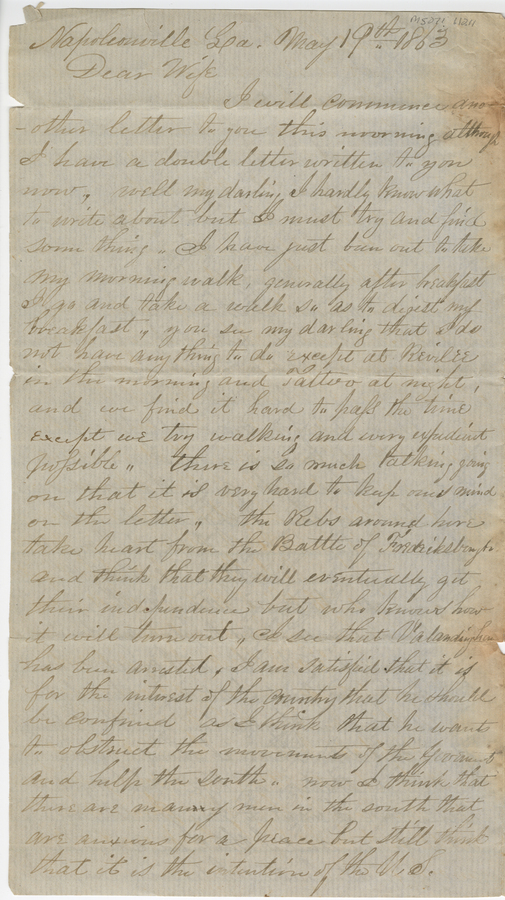 Napoleonville La. May 19th 1863
Dear Wife
I will commence ano-
-other letter to you this morning although
I have a double letter written to you
now, well my darling I hardly know what
to write about but I must try and find
some thing, I have just been out to take
my morning walk, generally after breakfast
I go and take a walk so as to digest my
breakfast, you see my darling that I do
not have anything to do except at Revilee
in the morning and Tattoo at night,
and we find it hard to pass the time
except we try walking and every expedient
possible, there is so much talking going
on that it is very hard to keep ones mind
on the letter, the Rebs around here
take heart from the Battle of
and think that they will eventually get
their independence but who knows how
it will turn out, I see that
has been arrested, I am satisfied that it is
for the interest of the country that he should
be confined as I think that he wants
to obstruct the movements of the
and help the south, now I think that
there are many men in the south that
are anxious for a peace but still think
that it is the intention of the U.S.